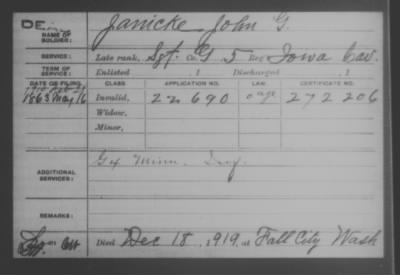 DE
NAME OF SOLDIER: Janicke John G.
SERVICE: Late rank, Sgt. Co. G 5 Reg Iowa Cav.
TERM OF SERVICE: Enlisted , 1 Discharged , 1
DATE OF FILING. CLASS APPLICATION NO. LAW CERTIFICATE NO.
1863 May 16 Invalid, 22,690 272206
Widow,
Minor,
ADDITIONAL SERVICES: G 4 Minn. Inf.
REMARKS:
Died Dec 18, 1919, at Fall City Wash